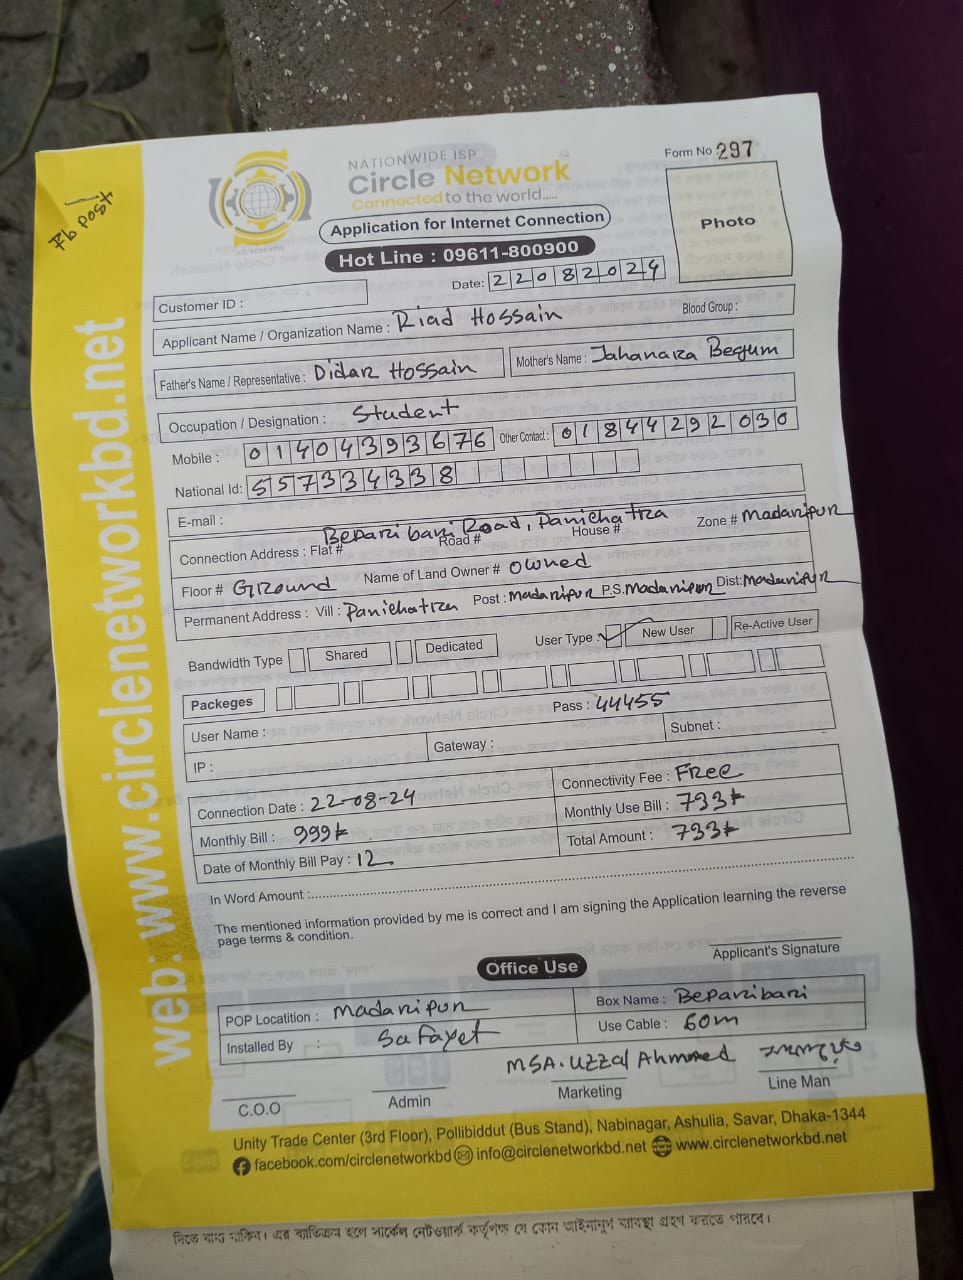 Fb post
NATIONWIDE ISP
Circle Network
Connected to the world.....
Form No 297
Application for Internet Connection
Photo
Hot Line : 09611-800900
Date: 22082024
Customer ID :
Applicant Name / Organization Name : Riad Hossain Blood Group :
Father's Name / Representative : Didar Hossain Mother's Name : Jahanara Begum
Occupation / Designation : Student
Mobile : 01404393676 Other Contact : 01844292030
National Id: 557334338
E-mail :
Beparibari Road, Panichatra
Connection Address : Flat # Road # House # Zone # Madaripur
Floor # Ground Name of Land Owner # Owned
Permanent Address : Vill : Panichatra Post : Madaripur P.S. Madaripur Dist: Madaripur
Bandwidth Type Shared Dedicated User Type : ✓ New User Re-Active User
Packeges
User Name : Pass : 44455
IP : Gateway : Subnet :
Connection Date : 22-08-24 Connectivity Fee : Free
Monthly Bill : 999 Monthly Use Bill : 733
Date of Monthly Bill Pay : 12 Total Amount : 733
In Word Amount :
The mentioned information provided by me is correct and I am signing the Application learning the reverse
page terms & condition.
Applicant's Signature
Office Use
POP Locatition : Madaripur Box Name : Beparibari
Installed By : Safayet Use Cable : 60m
MSA. Uzzal Ahmmed
C.O.O Admin Marketing Line Man
Unity Trade Center (3rd Floor), Pollibiddut (Bus Stand), Nabinagar, Ashulia, Savar, Dhaka-1344
facebook.com/circlenetworkbd info@circlenetworkbd.net www.circlenetworkbd.net
web: www.circlenetworkbd.net
দিতে বাধ্য থাকিব। এর ব্যতিক্রম হলে সার্কেল নেটওয়ার্ক কর্তৃপক্ষ যে কোন আইনানুগ ব্যবস্থা গ্রহণ করতে পারবে।